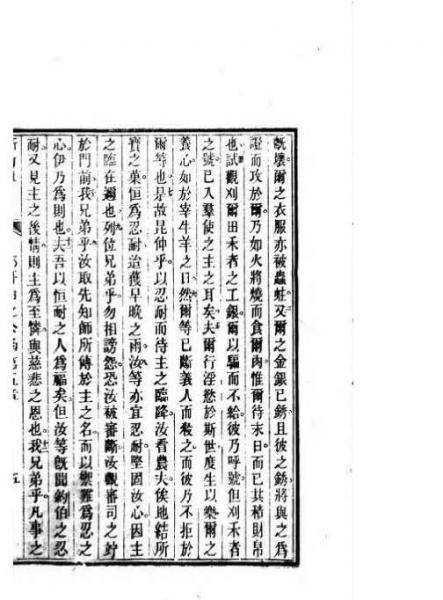 既壞爾之衣服亦被蟲蛀又爾之金銀已銹且彼之銹將與之爲
證而攻於爾乃如火將燒而食爾肉惟爾待末日而已其積財帛
也試觀刈爾田禾者之工銀爾以騙而不給彼乃呼號但刈禾者
之號已入羣使之主之耳矣夫爾行淫慾於斯世度生以樂爾之
養心如於宰牛羊之日然爾等已斷義人而殺之而彼乃不拒於
爾等也是故昆仲乎以忍耐而待主之臨降汝看農夫俟地結所
寶之菓恒爲忍耐迨獲早晚之雨汝等亦宜忍耐堅固汝心因主
之臨在邇也列位兄弟乎勿相謗怨恐汝被審斷汝觀審司之竚
於門前我兄弟乎汝取先知師所傳於主之名而以難爲忍之
心伊乃爲則也夫吾以恒耐之人爲福矣但汝等旣聞約伯之忍
耐又見主之後情則主爲至憐與慈悲之恩也我兄弟乎凡事之
第五章 五